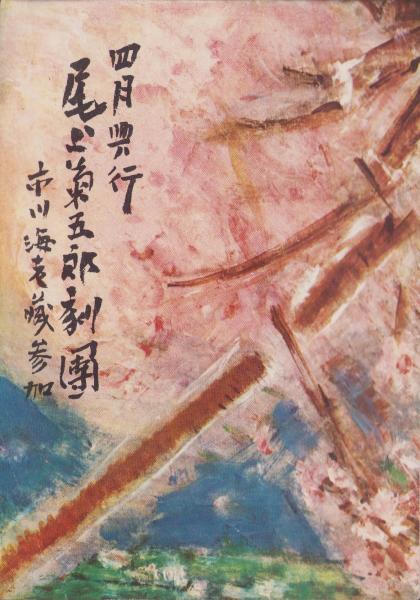 四月興行
尾上菊五郎劇團
市川海老蔵参加